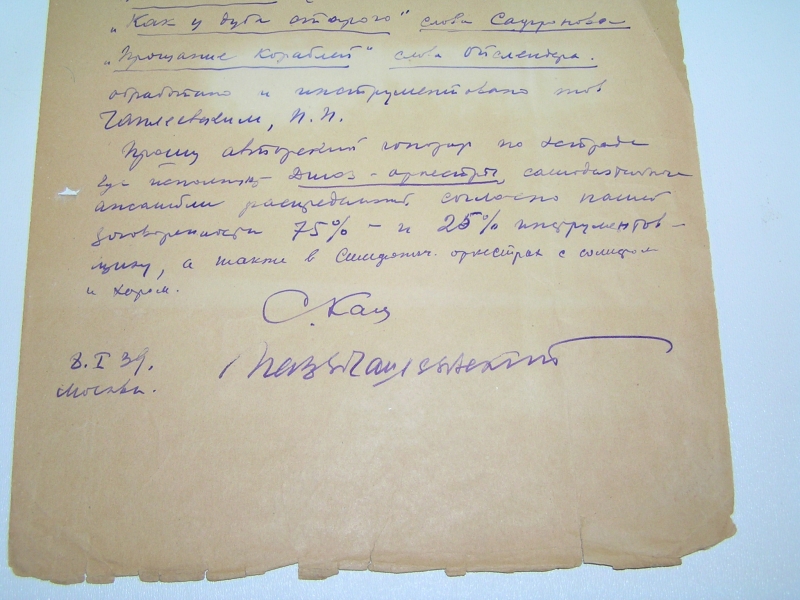 „Как у дуба старого" слова Сафронова
„Прощание кораблей" слова Ойслендера.
обработано и инструментовано тов
Чаплевским, П. П.
Прошу авторский гонорар по эстраде
где исполняют Джаз-оркестры, самодеятельные
ансамбли распределять согласно нашей
договоренности 75% - и 25% инструментов-
щику, а также в Симфонич. оркестрах с солистом
и хором.
С. Кац
8. I 39.
Москва.